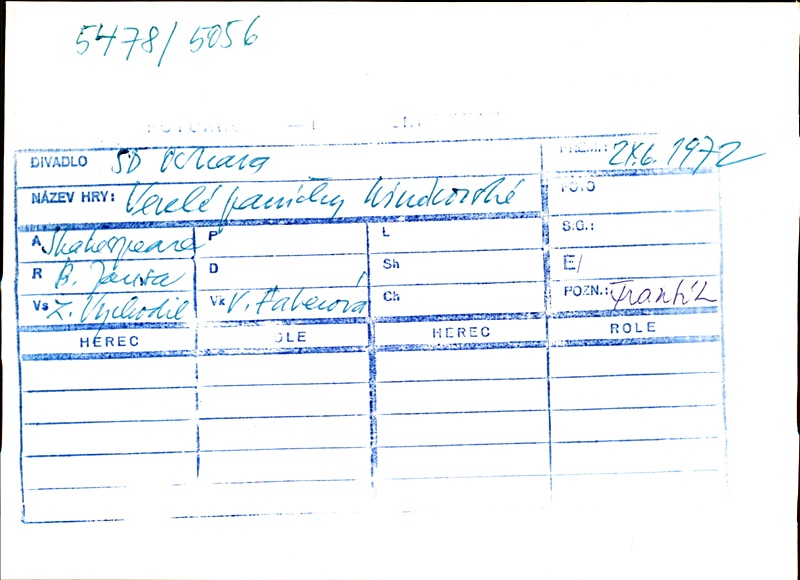 5478/5056
DIVADLO SD Ostrava PREM.: 24.6. 1972
NÁZEV HRY: Veselé paničky Windsorské FOTO
A Shakespeare P L S.G.:
R B. Jansa D Sh E/
Vs Z. Vychodil Vk V. Faberová Ch POZN.: Frantík
HEREC OLE HEREC ROLE